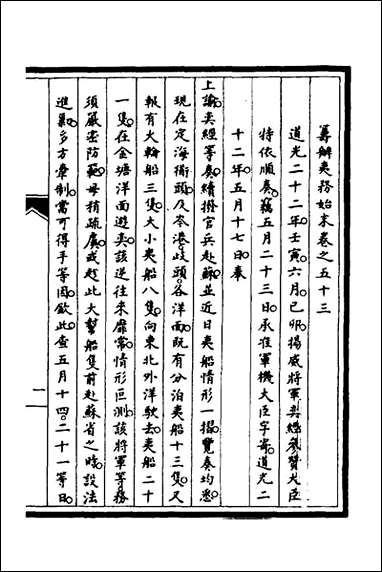 籌辦夷務始末卷之五十三
道光二十二年壬寅六月己卯揚威將軍奕經參贊大臣
特依順奏竊五月二十三日承准軍機大臣字寄道光二
十二年五月十七日奉
上諭奕經等奏續撥官兵赴蘇並近日夷船情形一摺覽奏均悉
現在定海衜頭及岑港歧頭各洋面既有分泊夷船十三隻又
報有大輪船三隻大小夷船八隻向東北外洋駛去夷船二十
一隻在金塘洋面遊奕該逆往來靡常情形叵測該將軍等務
須嚴密防範毋稍疏虞或趁此大幫船隻前赴蘇省之時設法
進剿多方牽制當可得手等因欽此查五月十四二十一等日
一